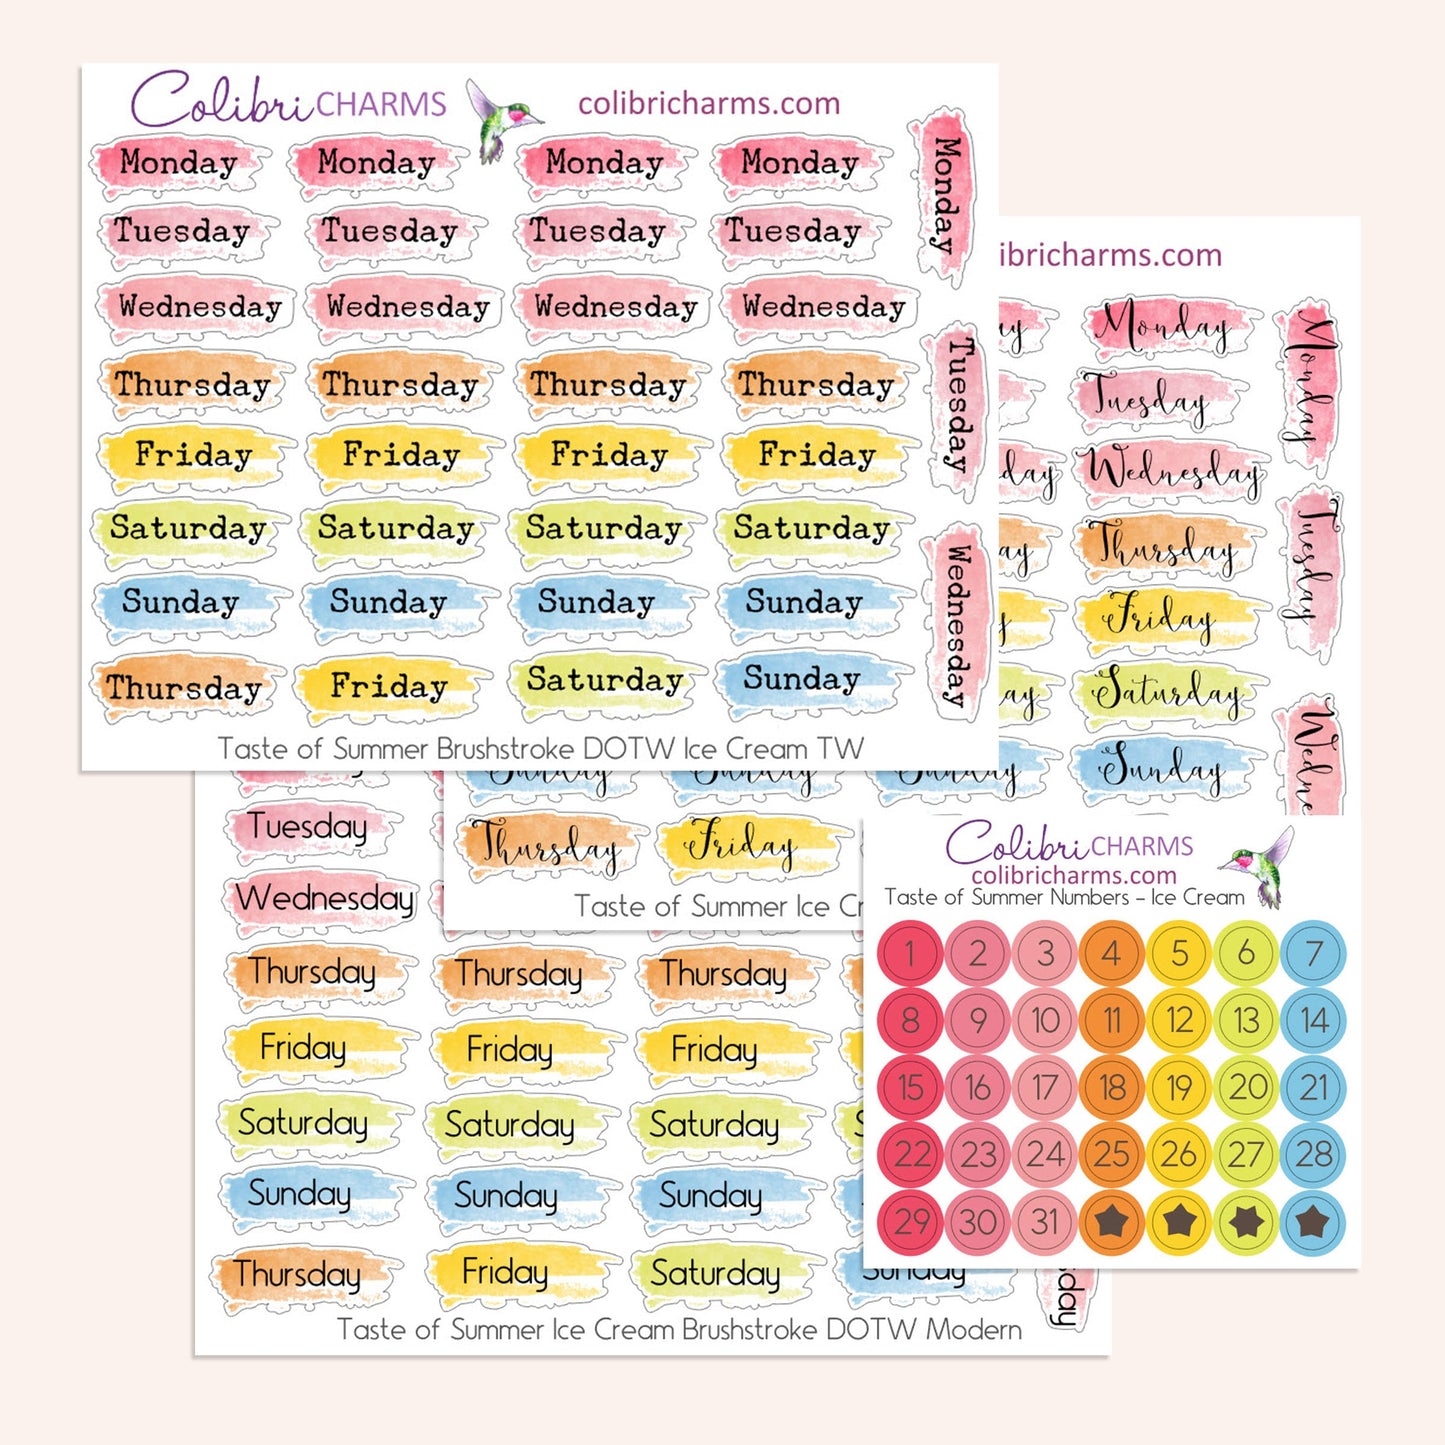 Colibri CHARMS colibricharms.com
Monday Monday Monday Monday Monday
Tuesday Tuesday Tuesday Tuesday
Wednesday Wednesday Wednesday Wednesday
Thursday Thursday Thursday Thursday Tuesday
Friday Friday Friday Friday
Saturday Saturday Saturday Saturday
Sunday Sunday Sunday Sunday Wednesday
Thursday Friday Saturday Sunday
Taste of Summer Brushstroke DOTW Ice Cream TW
ibricharms.com
ay Monday Monday
Tuesday
day Wednesday Tuesday
ay Thursday
Friday
ay Saturday
Sunday Sunday Sunday Sunday Wedne
Thursday Friday
Taste of Summer Ice Cr
Tuesday
Wednesday
Thursday Thursday Thursday
Friday Friday Friday
Saturday Saturday Saturday S
Sunday Sunday Sunday
Thursday Friday Saturday Sunday sday
Taste of Summer Ice Cream Brushstroke DOTW Modern
Colibri CHARMS
colibricharms.com
Taste of Summer Numbers - Ice Cream
1 2 3 4 5 6 7
8 9 10 11 12 13 14
15 16 17 18 19 20 21
22 23 24 25 26 27 28
29 30 31